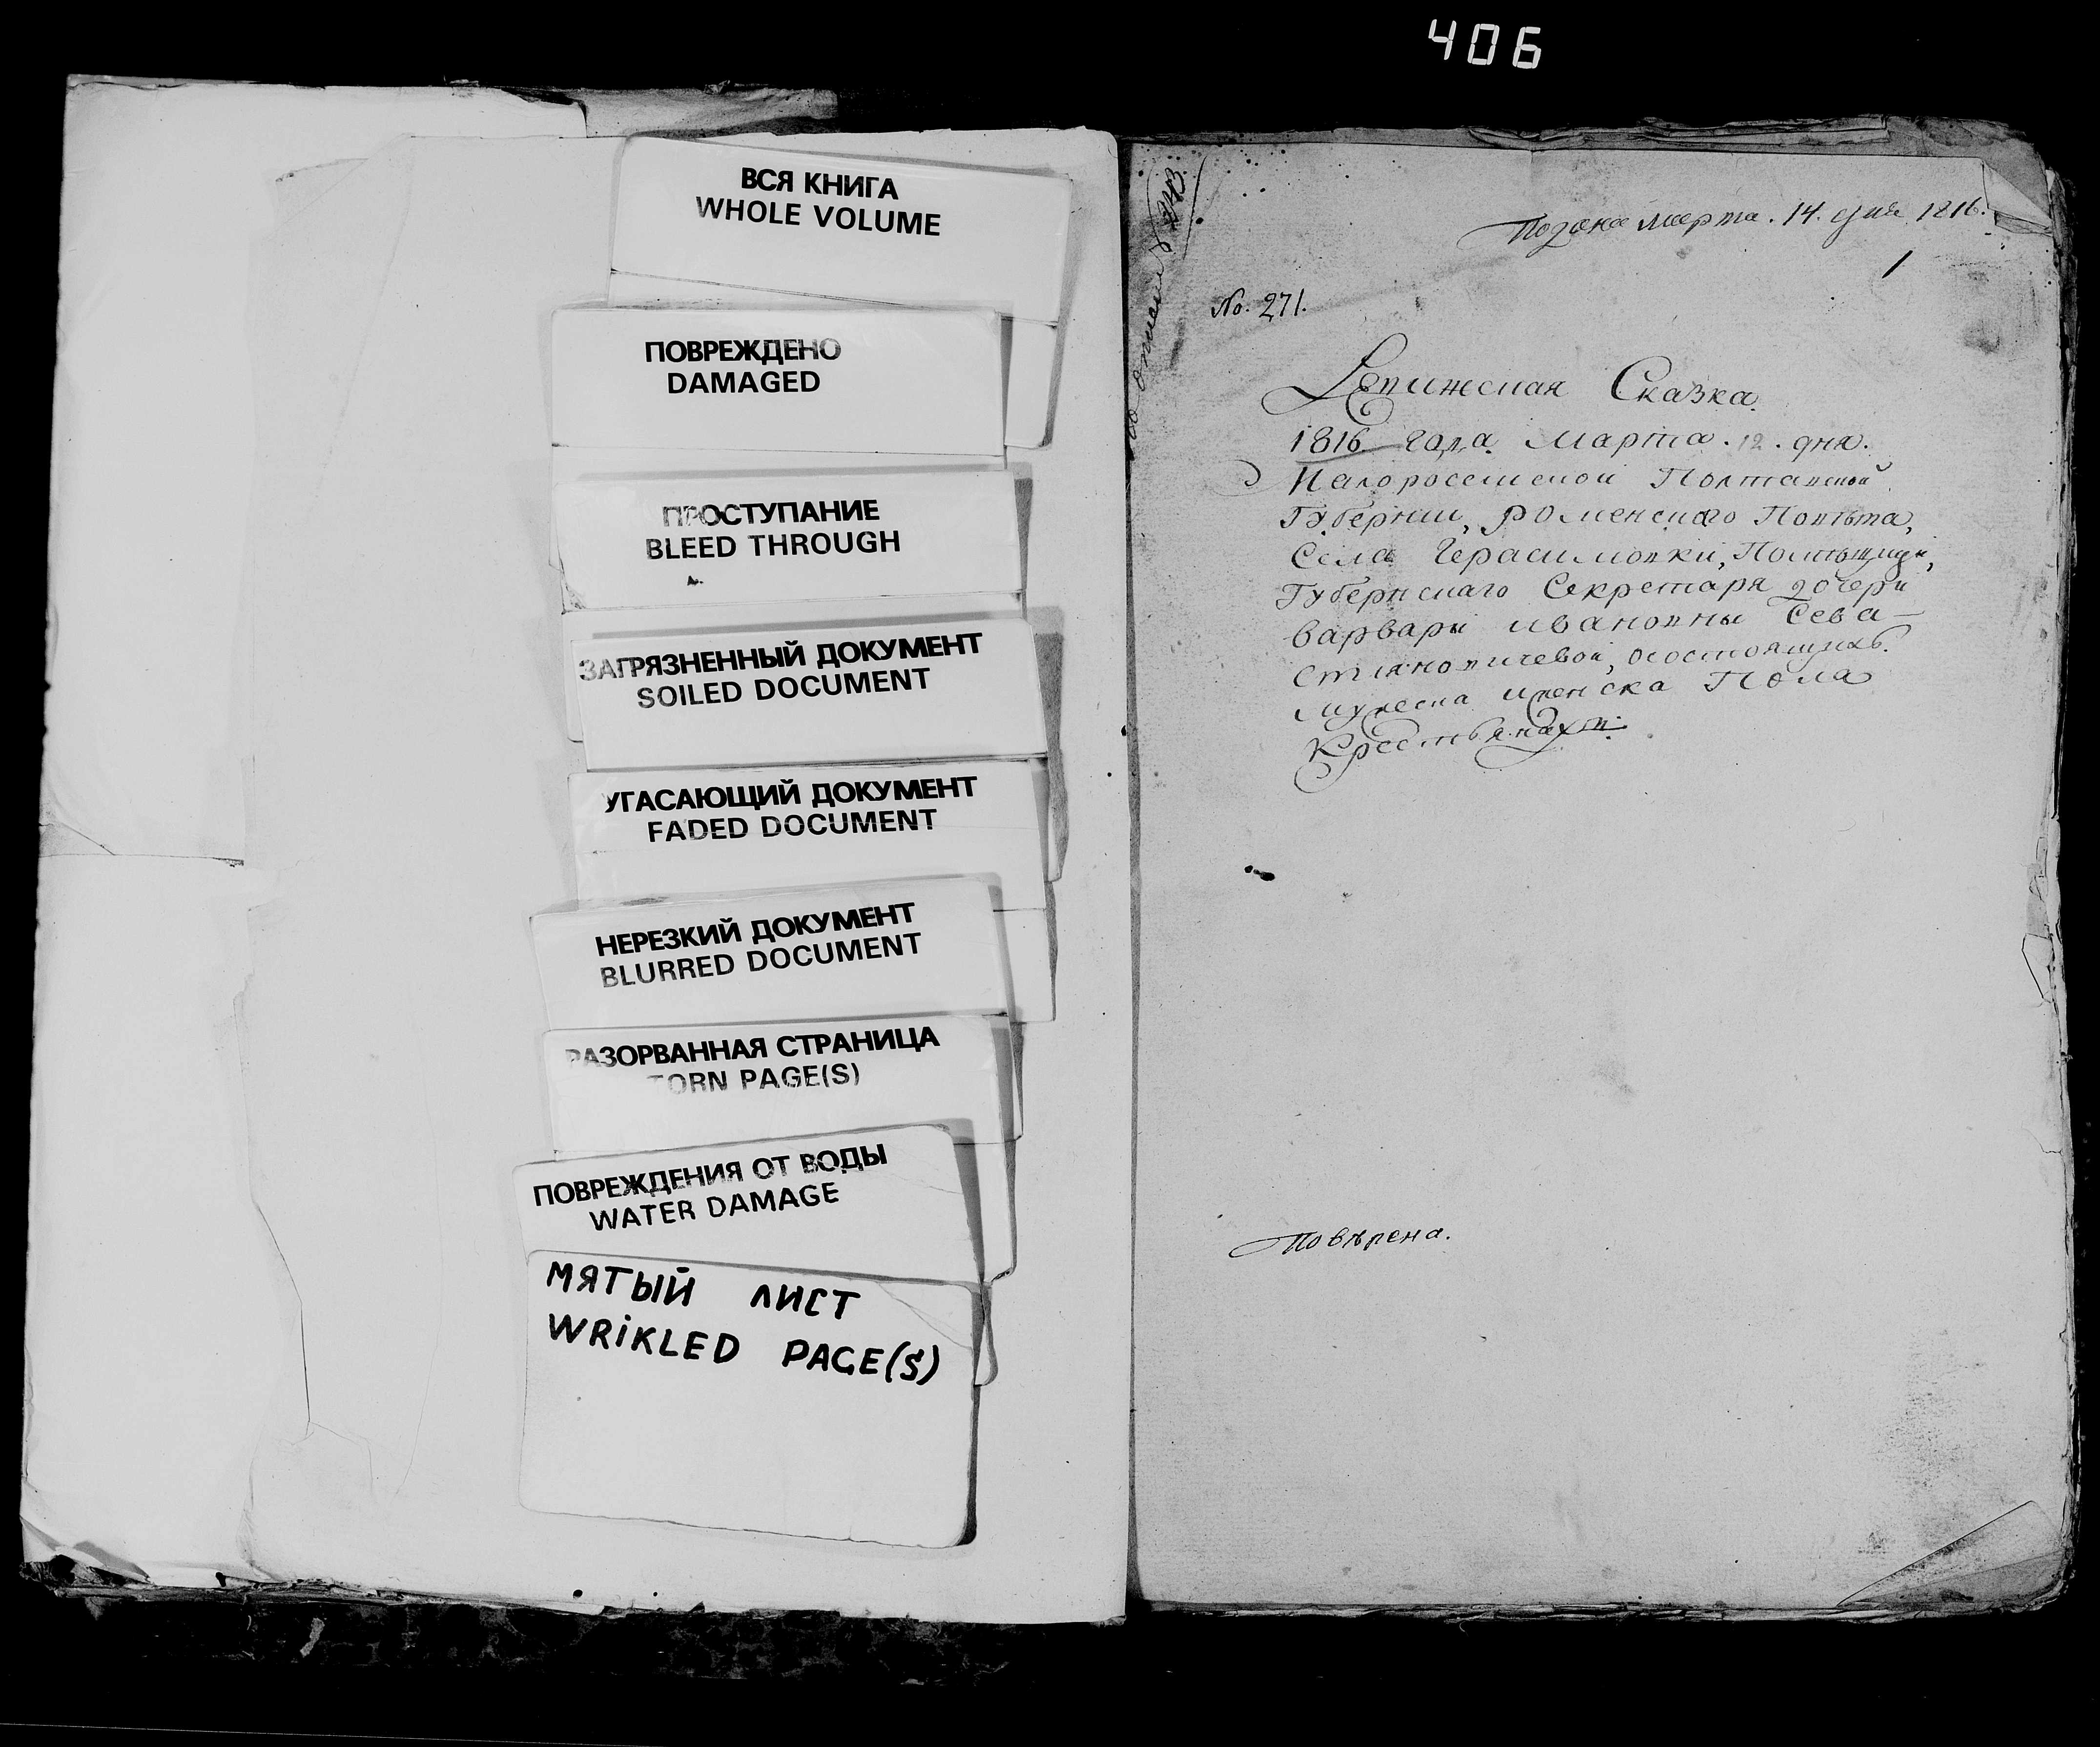 406
ВСЯ КНИГА
WHOLE VOLUME
ПОВРЕЖДЕНО
DAMAGED
ПРОСТУПАНИЕ
BLEED THROUGH
ЗАГРЯЗНЕННЫЙ ДОКУМЕНТ
SOILED DOCUMENT
УГАСАЮЩИЙ ДОКУМЕНТ
FADED DOCUMENT
НЕРЕЗКИЙ ДОКУМЕНТ
BLURRED DOCUMENT
РАЗОРВАННАЯ СТРАНИЦА
TORN PAGE(S)
ПОВРЕЖДЕНИЯ ОТ ВОДЫ
WATER DAMAGE
МЯТЫЙ ЛИСТ
WRIKLED PAGE(S)
Подана марта. 14. дня 1816.
1
No. 271.
Ревижская Сказка.
1816 года Марта. 12. дня.
Малоросейской Полтавской
Губернии, Роменского Повѣта,
Села Герасимовки, Помѣщицы,
Губернскаго Секретаря дочери
Варвары Ивановны Сева-
стиановичевой, о состоящихъ
мужеска и женска Пола
Крестьянахъ.
Повѣрена.